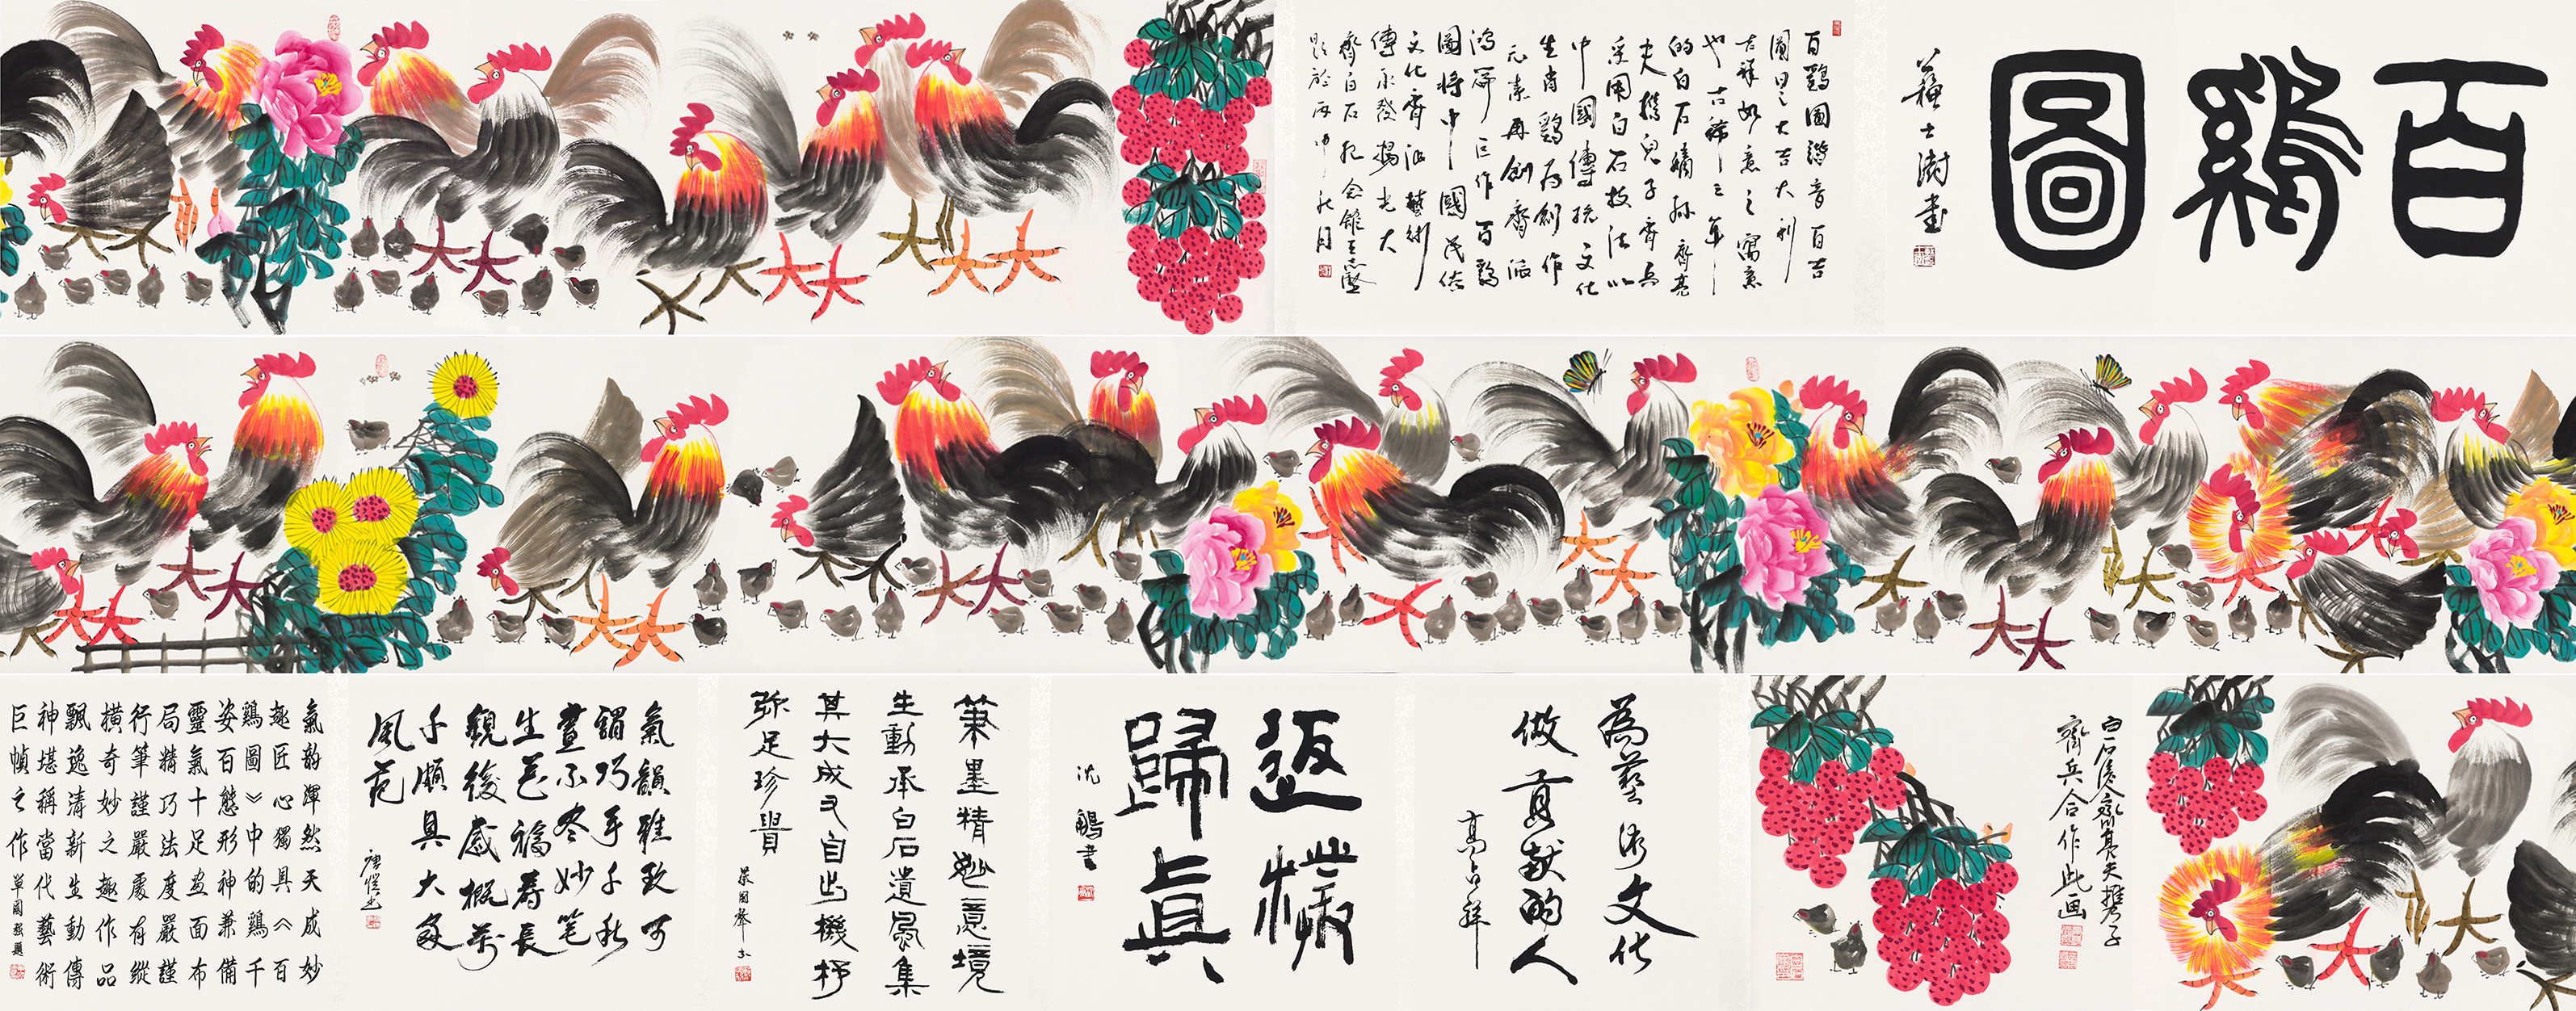 百鷄圖
蘇士澍書
百鷄圖諧音百吉
圖曰之大吉大利
吉祥如意之寓意
也古稀之年
的白石嫡孫齊亮
夫攜兒子齊兵
采用白石技法以
中國傳統文化
生肖鷄為創作
元素再創齊派
鴻篇巨作百鷄
圖將中國民俗
文化齊派藝術
傳承發揚光大
齊白石紀念館王志堅
題於丙申秋月
白石後裔齊亮夫攜子
齊兵合作此画
為藝術文化
做貢献的人
高占祥
返樸
歸真
沈鵬書
筆墨精妙意境
生動承白石遺風集
其大成又自出機杼
弥足珍貴
氣韻雅致可
謂巧手千秋
畫不冬妙笔
生花福壽長
觀後感概萬
千頗具大家
風范
氣韵渾然天成妙
趣匠心獨具《百
鷄圖》中的鷄千
姿百態形神兼備
靈氣十足画面布
局精巧法度嚴謹
行筆謹嚴處有縱
橫奇妙之趣作品
飄逸清新生動傳
神堪稱當代藝術
巨幀之作單國強題